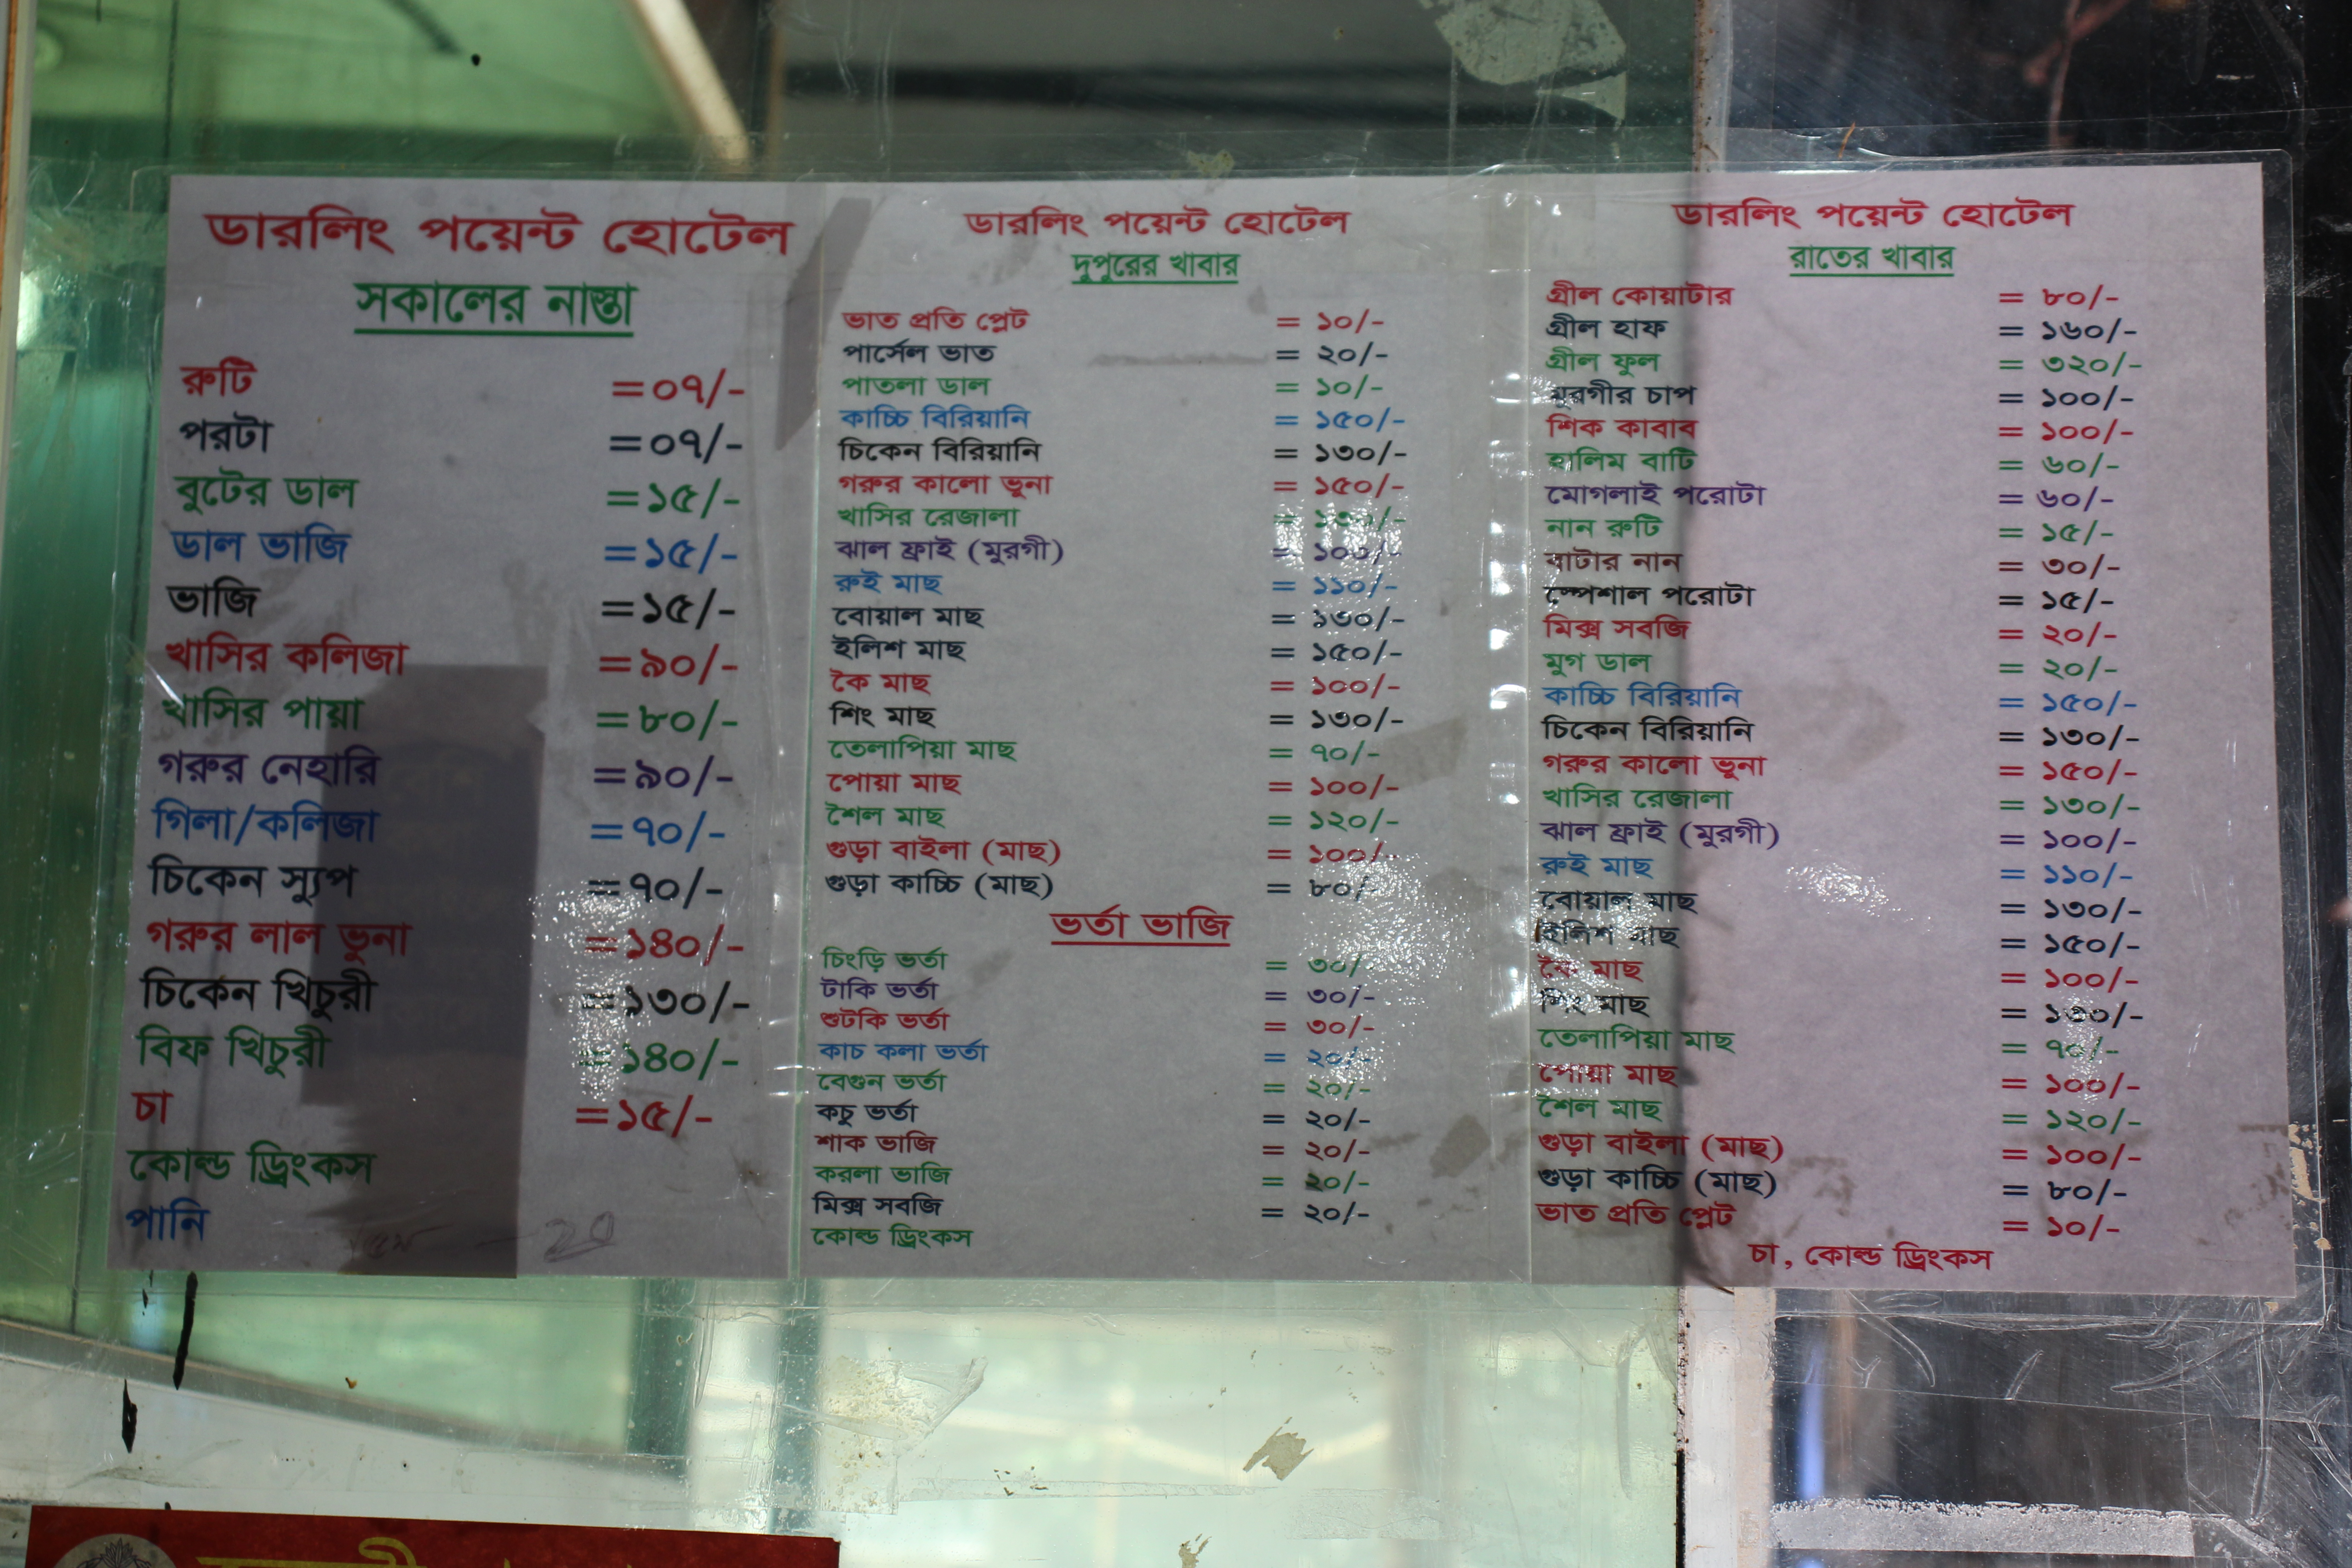 ডারলিং পয়েন্ট হোটেল
সকালের নাস্তা
রুটি =০৭/-
পরটা =০৭/-
বুটের ডাল =১৫/-
ডাল ভাজি =১৫/-
ভাজি =১৫/-
খাসির কলিজা =৯০/-
খাসির পায়া =৮০/-
গরুর নেহারি =৯০/-
গিলা/কলিজা =৭০/-
চিকেন স্যুপ =৭০/-
গরুর লাল ভুনা =১৪০/-
চিকেন খিচুরী =১৩০/-
বিফ খিচুরী =১৪০/-
চা =১৫/-
কোল্ড ড্রিংকস
পানি
ডারলিং পয়েন্ট হোটেল
দুপুরের খাবার
ভাত প্রতি প্লেট = ১০/-
পার্সেল ভাত = ২০/-
পাতলা ডাল = ১০/-
কাচ্চি বিরিয়ানি = ১৫০/-
চিকেন বিরিয়ানি = ১৩০/-
গরুর কালো ভুনা = ১৫০/-
খাসির রেজালা = ১৩০/-
ঝাল ফ্রাই (মুরগী) = ১০০/-
রুই মাছ = ১১০/-
বোয়াল মাছ = ১৩০/-
ইলিশ মাছ = ১৫০/-
কৈ মাছ = ১০০/-
শিং মাছ = ১৩০/-
তেলাপিয়া মাছ = ৭০/-
পোয়া মাছ = ১০০/-
শৈল মাছ = ১২০/-
গুড়া বাইলা (মাছ) = ১০০/-
গুড়া কাচ্চি (মাছ) = ৮০/-
ভর্তা ভাজি
চিংড়ি ভর্তা = ৩০/-
টাকি ভর্তা = ৩০/-
শুটকি ভর্তা = ৩০/-
কাচ কলা ভর্তা = ২০/-
বেগুন ভর্তা = ২০/-
কচু ভর্তা = ২০/-
শাক ভাজি = ২০/-
করলা ভাজি = ২০/-
মিক্স সবজি = ২০/-
কোল্ড ড্রিংকস
ডারলিং পয়েন্ট হোটেল
রাতের খাবার
গ্রীল কোয়াটার = ৮০/-
গ্রীল হাফ = ১৬০/-
গ্রীল ফুল = ৩২০/-
মুরগীর চাপ = ১০০/-
শিক কাবাব = ১০০/-
হালিম বাটি = ৬০/-
মোগলাই পরোটা = ৬০/-
নান রুটি = ১৫/-
বাটার নান = ৩০/-
স্পেশাল পরোটা = ১৫/-
মিক্স সবজি = ২০/-
মুগ ডাল = ২০/-
কাচ্চি বিরিয়ানি = ১৫০/-
চিকেন বিরিয়ানি = ১৩০/-
গরুর কালো ভুনা = ১৫০/-
খাসির রেজালা = ১৩০/-
ঝাল ফ্রাই (মুরগী) = ১০০/-
রুই মাছ = ১১০/-
বোয়াল মাছ = ১৩০/-
ইলিশ মাছ = ১৫০/-
কৈ মাছ = ১০০/-
শিং মাছ = ১৩০/-
তেলাপিয়া মাছ = ৭০/-
পোয়া মাছ = ১০০/-
শৈল মাছ = ১২০/-
গুড়া বাইলা (মাছ) = ১০০/-
গুড়া কাচ্চি (মাছ) = ৮০/-
ভাত প্রতি প্লেট = ১০/-
চা, কোল্ড ড্রিংকস